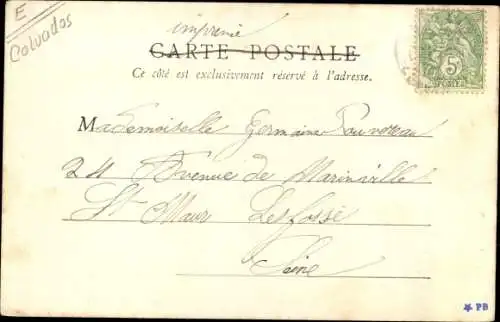 E
Calvados
imprimé
CARTE POSTALE
Ce côté est exclusivement réservé à l'adresse.
5
Mademoiselle Germaine
24 Avenue de Marinville
St Maur Les fossé
Seine
PB